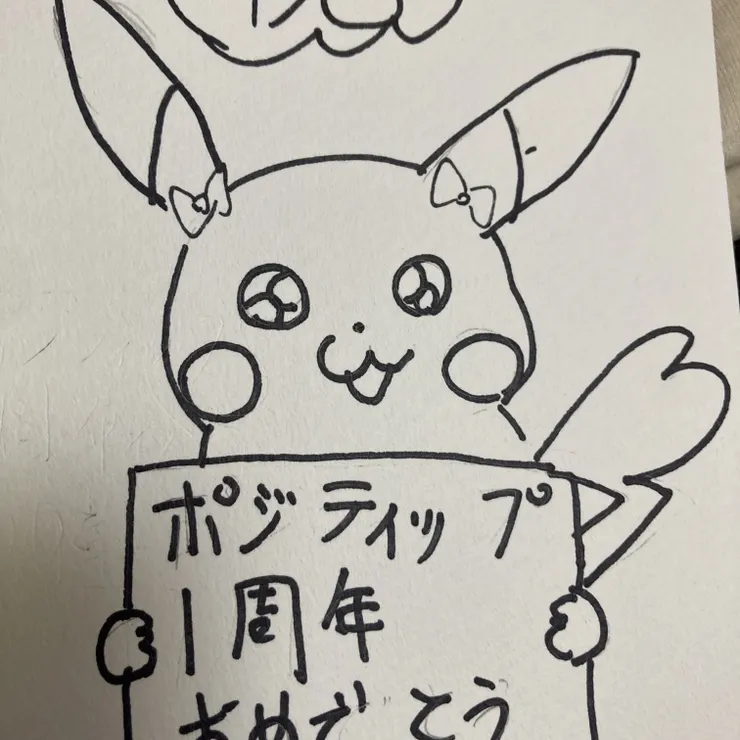 ポジティップ
1周年
おめでとう